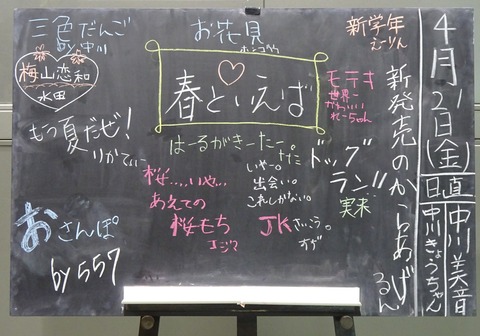 4月21日(金)
日直
中川美音
中川きょうちゃん
新発売のからあげ
るん
新学年
えーりん
お花見
三色だんご
by中川
春といえば
梅山恋和
水田
モテキ
世界一
かわいい
れーちゃん
もう夏だぜ!
りかてぃー
はーるがきーたー。
ドッグ
ラン!!
実来
いやー。
出会い。
これしかない。
桜....いや...
あえての
桜もち
JKさいこう。
おさんぽ
by557